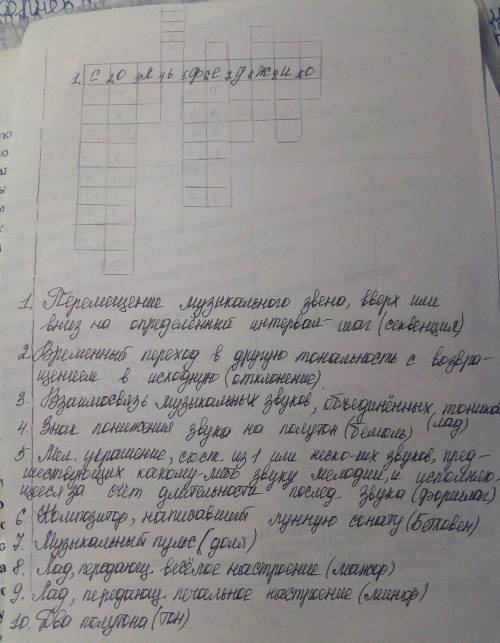 1. С 2О 3Л 4Ь 5Ф 6Е 7Д 8Ж 9И 10О
1. Перемещение музыкального звена, вверх или
вниз на определённый интервал-шаг (секвенция)
2. Временный переход в другую тональность с возвра-
щением в исходную (отклонение)
3. Взаимосвязь музыкальных звуков, объединённых, тоникой
(лад)
4. Знак понижения звука на полутон (бемоль)
5. Мел. украшение, сост. из 1 или неско-ких звуков, пред-
шествующих какому-либо звуку мелодии, и исполняю-
щееся за счёт длительности послед. звука (форшлаг)
6. Композитор, написавший лунную сонату (Бетховен)
7. Музыкальный пульс (доля)
8. Лад, передающ. весёлое настроение (мажор)
9. Лад, передающ. печальное настроение (минор)
10. Два полутона (тон)